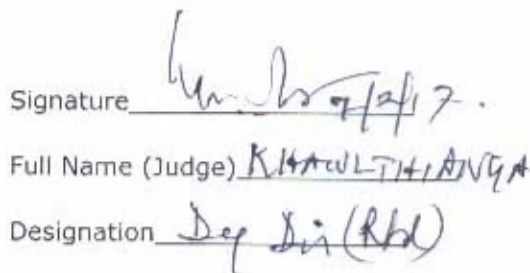 Signature 7/2/17.
Full Name (Judge) KHAWLTHIANGA
Designation Dey Dir (Rtd)